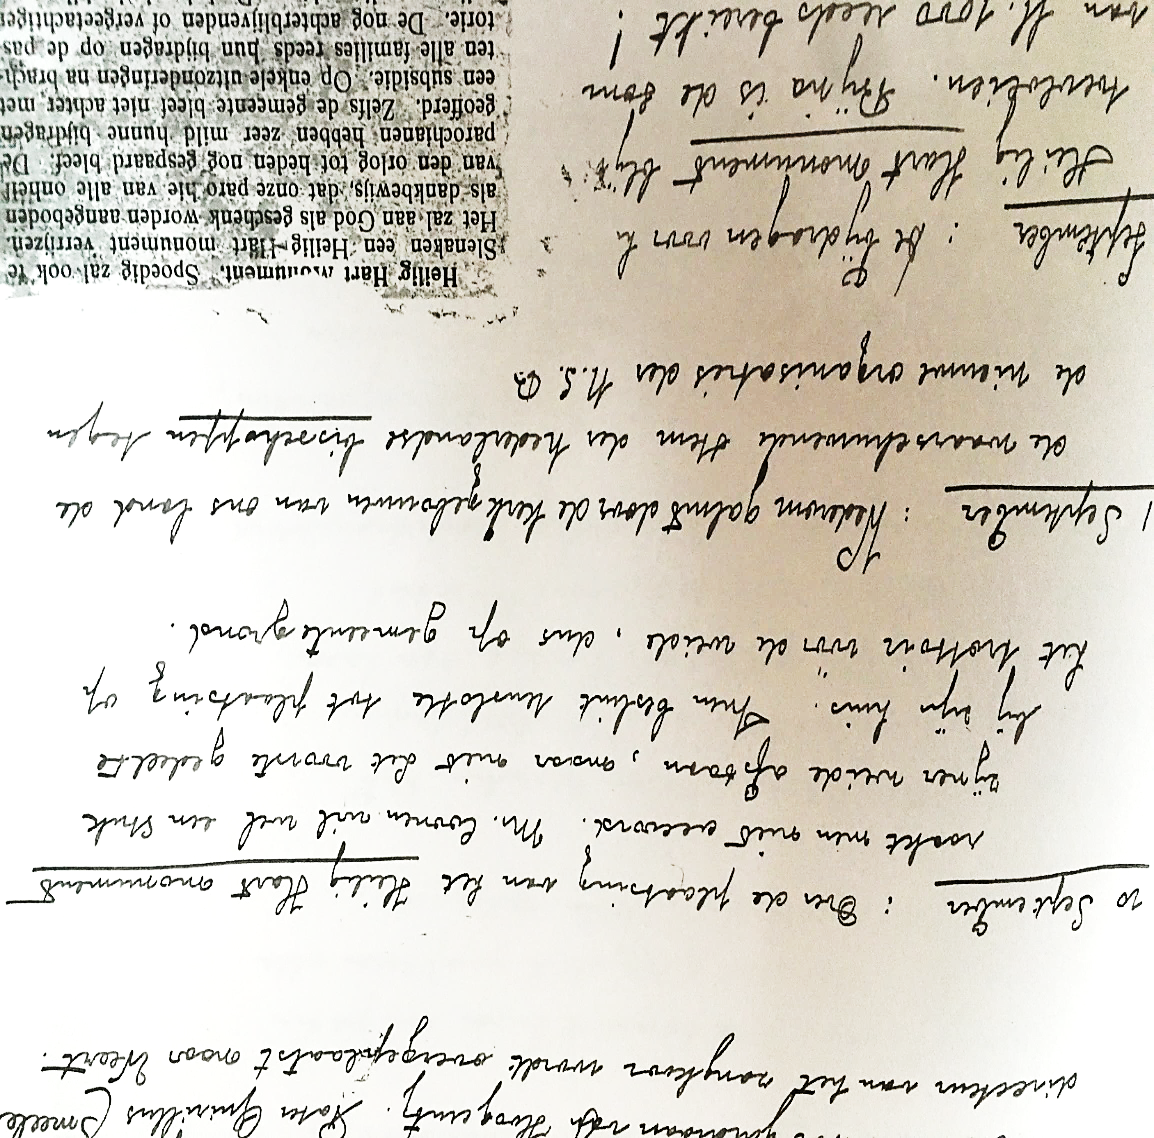 Pater Quirillus (Smeele
directeur van het zangkoor wordt overgeplaatst naar Weert.
10 September : Over de plaatsing van het Heilig Hart monument
raakt men niet accoord. Mr. Coonen wil wel een stuk
zijner weide afstaan, maar niet het voorste gedeelte
bij zijn huis. Men besluit tenslotte tot plaatsing op
het trottoir vóór de weide, dus op gemeentegrond.
1 September : Wederom galmt door de kerkgebouwen van ons land de
de waarschuwende stem der Nederlandse bisschoppen tegen
de nieuwe organisaties der N.S.B.
September : De bijdragen voor h
Heilig Hart monument blij
toevloeien. Bijna is de som
van fl. 1000 reeds bereikt!
Heilig Hart Monument. Spoedig zal ook te
Slenaken een Heilig-Hart monument verrijzen.
Het zal aan God als geschenk worden aangeboden
als dankbewijs, dat onze parochie van alle onheil
van den orlog tot heden nog gespaard bleef. De
parochianen hebben zeer mild hunne bijdragen
geofferd. Zelfs de gemeente bleef niet achter met
een subsidie. Op enkele uitzonderingen na brach-
ten alle families reeds hun bijdragen op de pas-
torie. De nog achterblijvenden of vergeetachtigen